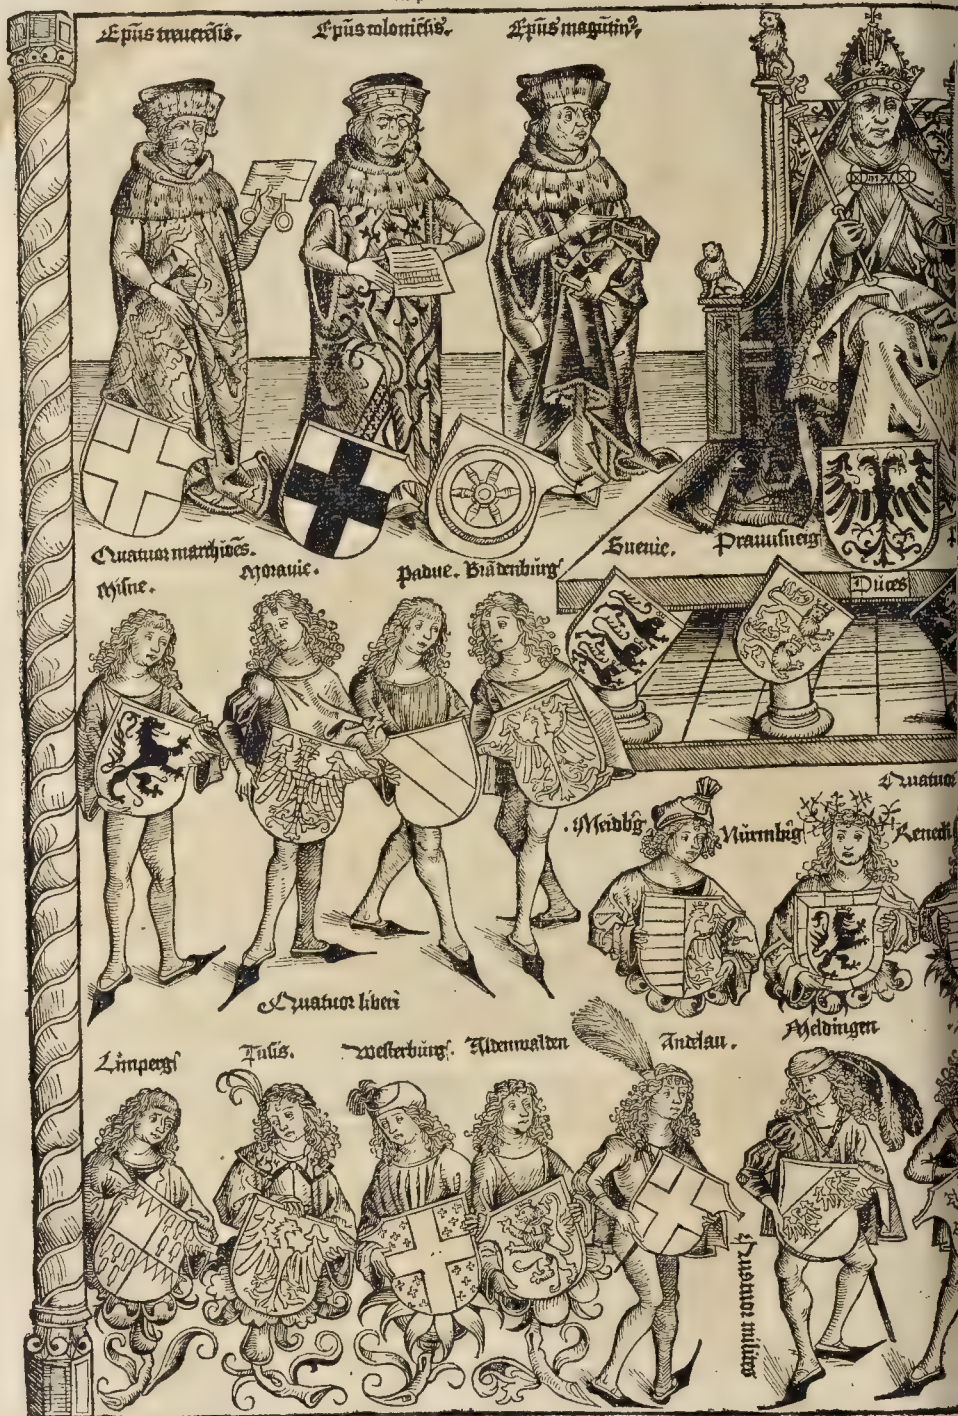 Epūs treuerēsis.
Epūs coloniēsis.
Epūs magūtinꝰ.
Quatuor marchiōes.
Misne.
Morauie.
Padue.
Brādenburg
Sueuie.
Prauusueig
Duces
Meidbḡ
Nūrmbḡ
Quatuor
Quatuor liberi
Limpergs
Tusis.
Westerburg.
Aldenwalden
Andelau.
Meldingen
Quatuor milites